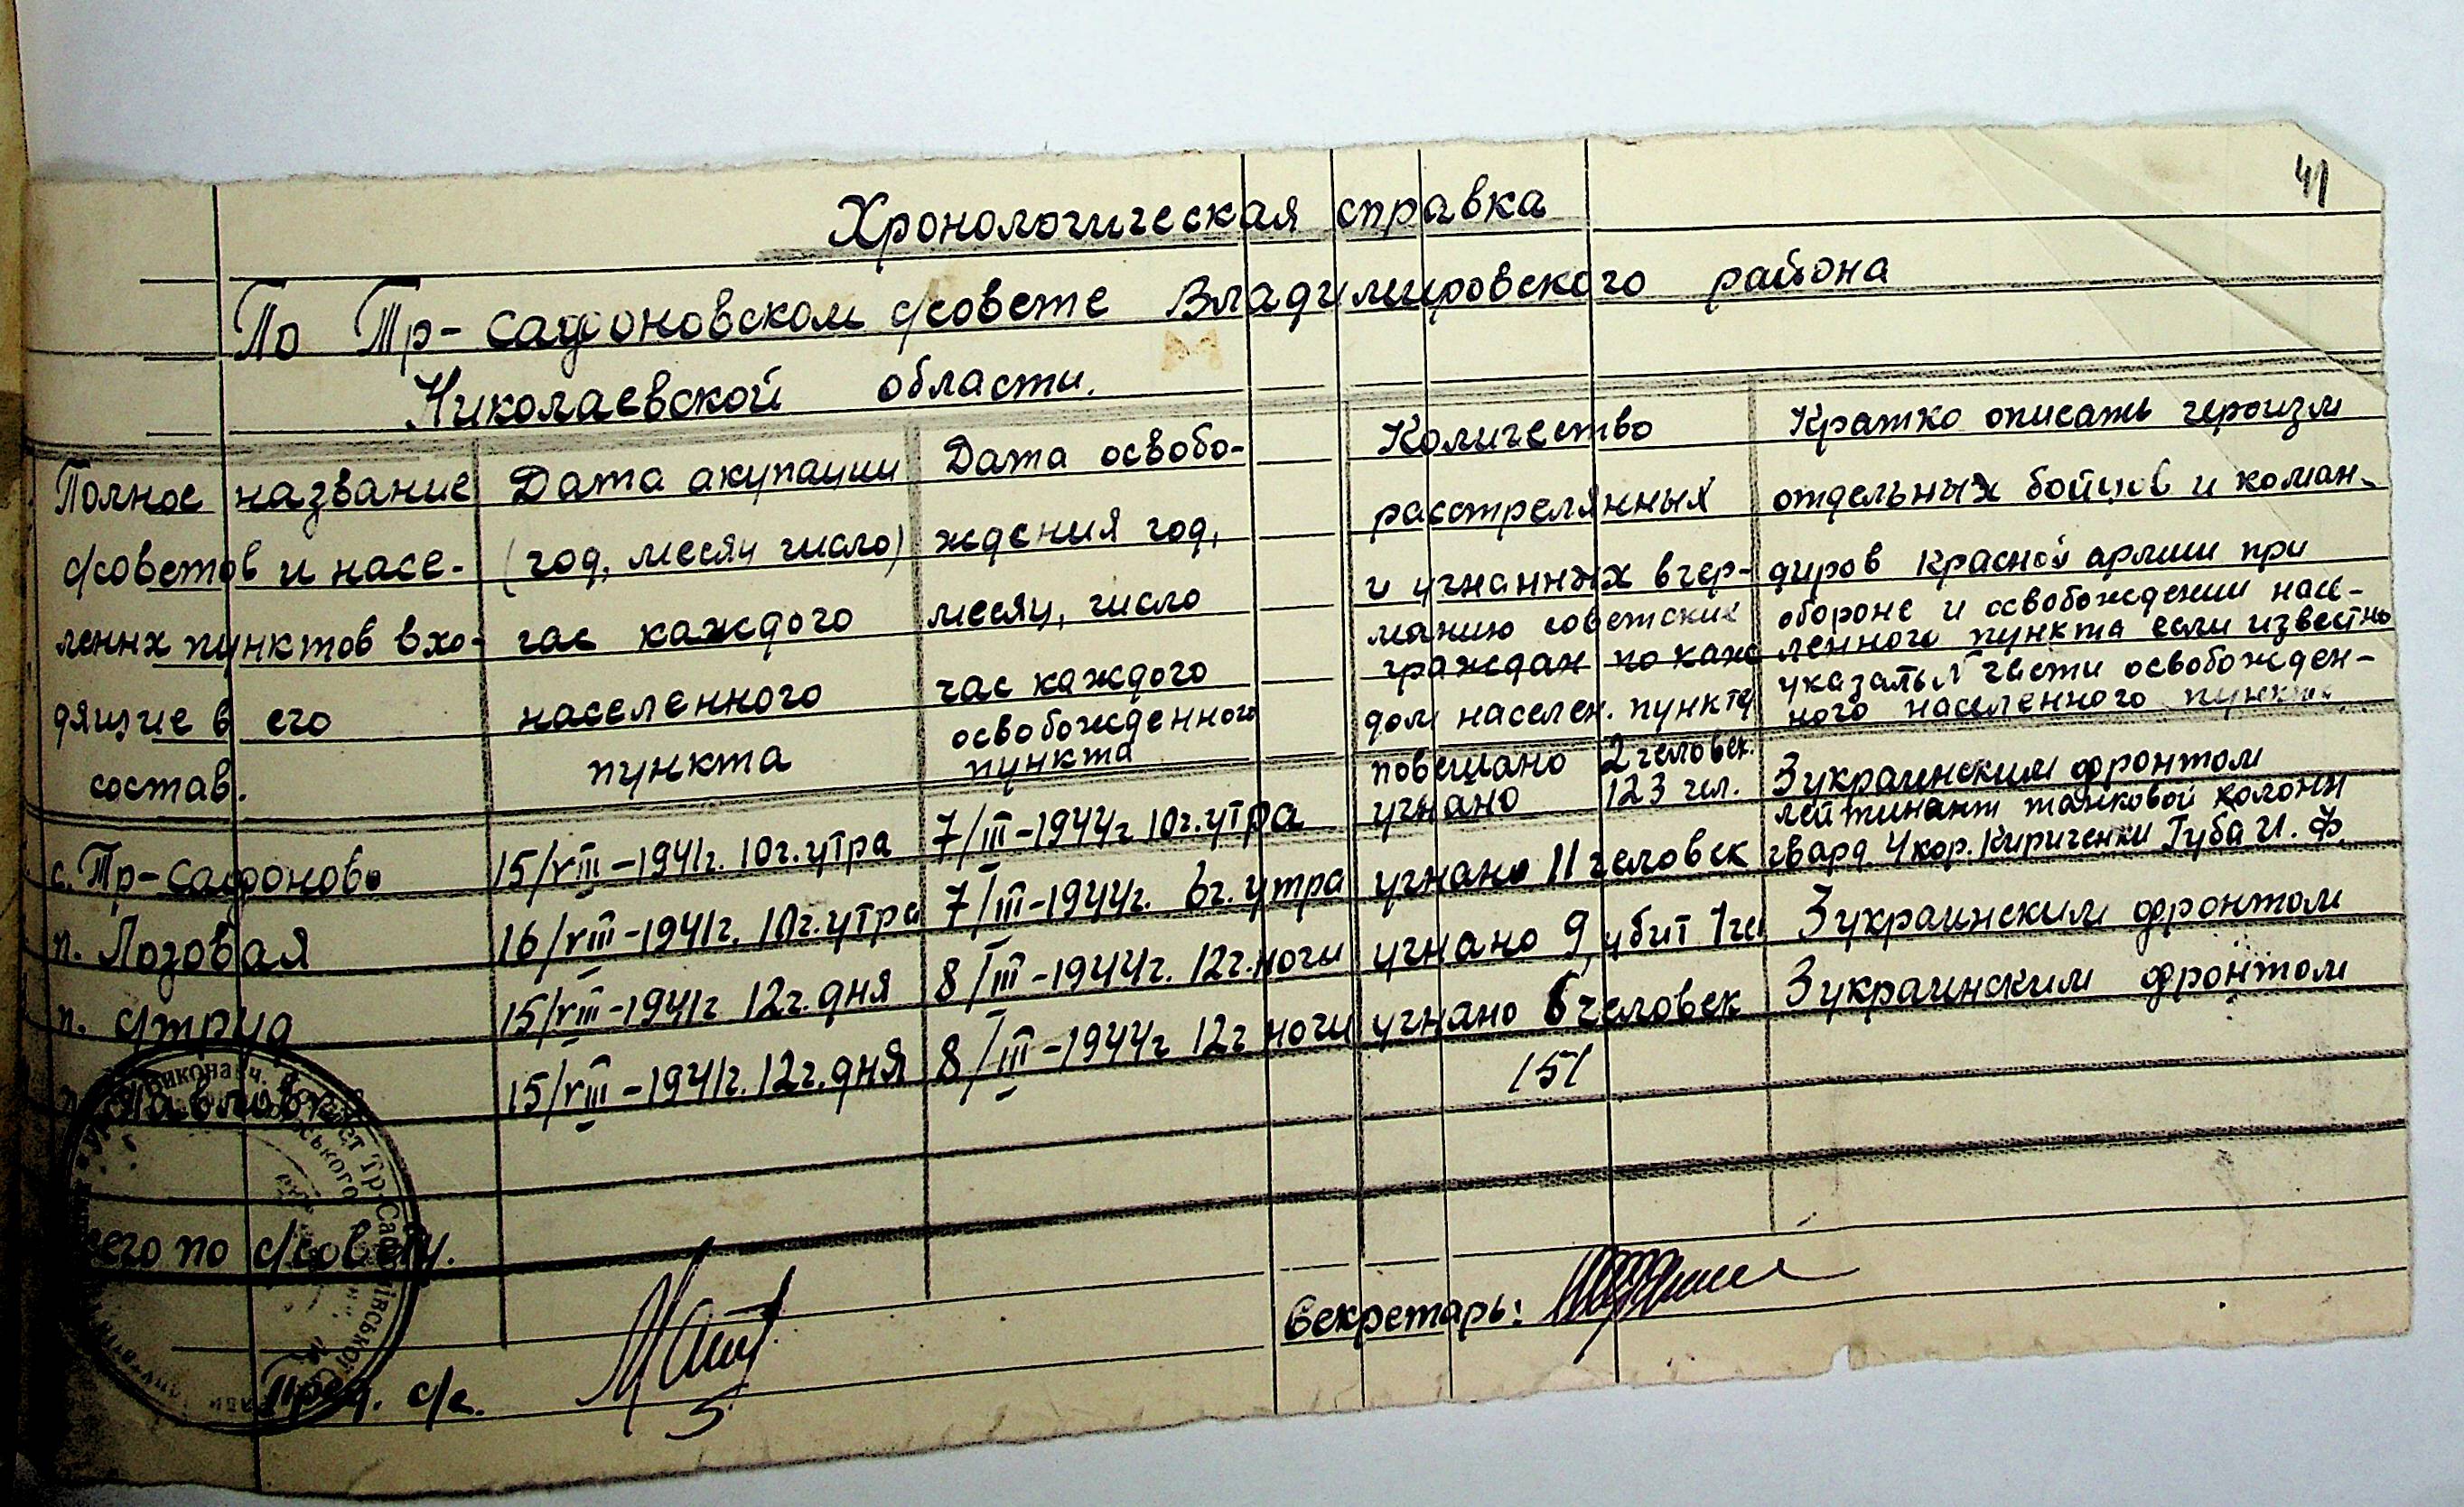 41
Хронологическая справка
По Тр-сафоновском с/совете Владимировского района
Николаевской области.
Полное название
с/советов и насе-
леннх пунктов вхо-
дящие в его
состав.
Дата акупации
(год, месяц число)
час каждого
населенного
пункта
Дата освобо-
ждения год,
месяц, число
час каждого
освобожденного
пункта
Количество
расстрелянных
и угнанных в гер-
манию советских
граждан по каж
дом населен. пункте
Кратко описать героизм
отдельных бойцов и коман-
диров Красной армии при
обороне и освобождении насе-
ленного пункта если известно
указать № части освобожден-
ного населенного пункта.
с. Тр-сафоново
15/VIII-1941г. 10ч. утра
7/III-1944г 10ч. утра
повешано 2 человек.
угнано 123 чел.
3 украинским фронтом
лейтинант танковой колонн
гвард. 4 кор. Кириченки Губа И. Ф.
п. Лозовая
16/VIII-1941г. 10ч. утра
7/III-1944г. 6ч. утра
угнано 11 человек
п. с/труд
15/VIII-1941г 12ч. дня
8/III-1944г. 12ч. ночи
угнано 9, убит 1че
3 украинским фронтом
15/VIII-1941г. 12ч. дня
8/III-1944г 12ч ночи
угнано 6 человек
3 украинским фронтом
151
его по с/совету.
Пред. с/с.
Секретарь: